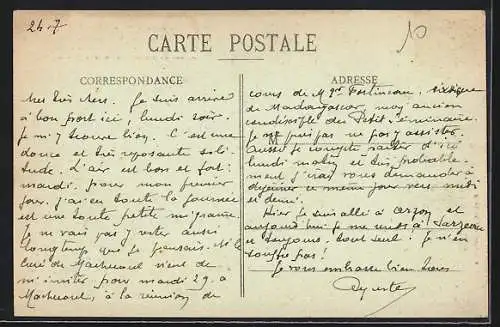 24-7
10
CARTE POSTALE
CORRESPONDANCE
ADRESSE
M
Mes très chers. Je suis arrivé
à bon port ici, lundi soir.
Je m'y trouve bien. C'est une
douce et très reposante soli-
tude. L'air est bon et fort:
mardi, pour mon premier
jour, j'ai eu toute la journée
une toute petite migraine.
Je ne vais pas y rester aussi
longtemps que je pensais. M. le
Curé de Machecoul vient de
m'inviter pour mardi 29, à
Machecoul, à la réunion du
cours de Mgr Fortineau, évêque
de Madagascar, mon ancien
condisciple du Petit-Séminaire.
Je ne puis pas ne pas y assister.
Aussi je compte rentrer d'ici
lundi matin et très probable-
ment j'irai vous demander à
déjeuner ce même jour vers midi
et demi.
Hier je suis allé à Arzon et
aujourd'hui je me rends à Sarzeau
et toujours tout seul! Je n'en
souffre pas!
Je vous embrasse bien chers